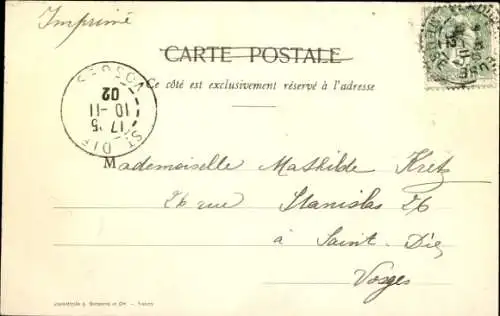 Imprimé
CARTE POSTALE
Ce côté est exclusivement réservé à l'adresse
ST-DIÉ
17 5
10-11
02
VOSGES
Mademoiselle Mathilde Kretz
26 rue Stanislas 26
à Saint-Dié
Vosges
Nancy